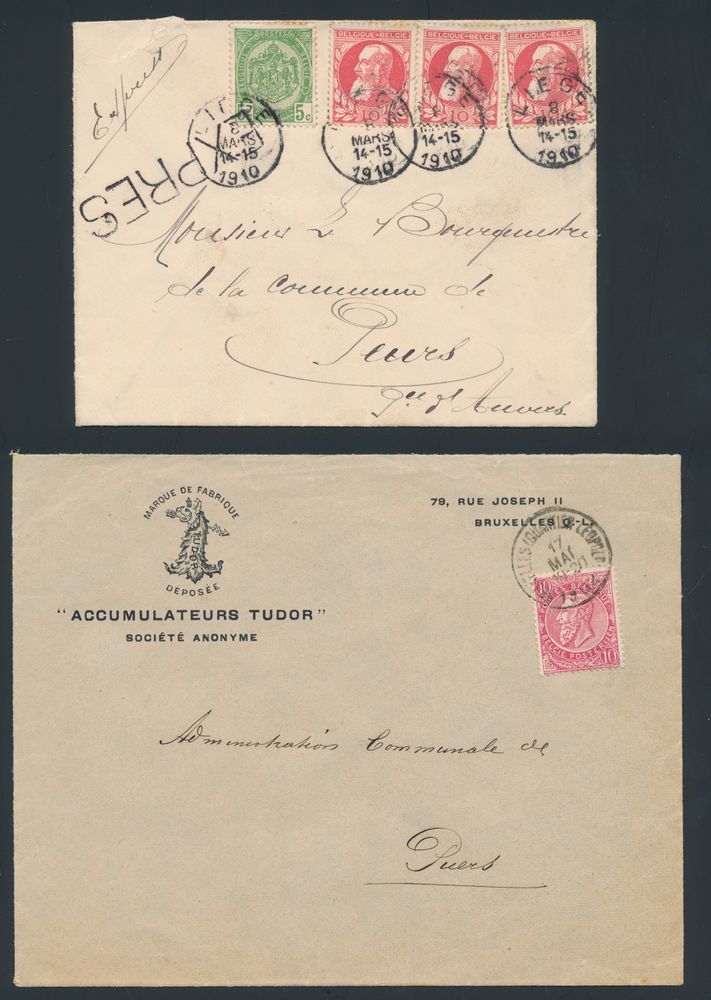 Exprès
PRES
5c
BELGIQUE-BELGIE
10
BELGIQUE-BELGIE
10
BELGIQUE-BELGIE
LIEGE
8
MARS
14-15
1910
8
MARS
14-15
1910
LIEGE
8
MARS
14-15
1910
Monsieur Le Bourgmestre
de la Commune de
Puers
Pce d'Anvers
MARQUE DE FABRIQUE
TUDOR
DÉPOSÉE
"ACCUMULATEURS TUDOR"
SOCIÉTÉ ANONYME
79, RUE JOSEPH II
BRUXELLES Q.-L.
17
MAI
10
10
Administration Communale de
Puers